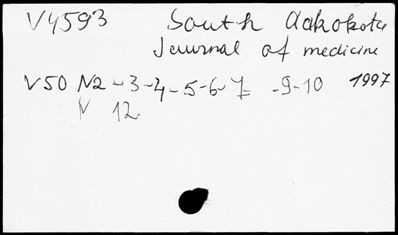 V4593 South dakokota
Journal of medicine
V50 N2-3-4-5-6-7 -9-10 1997
N 12